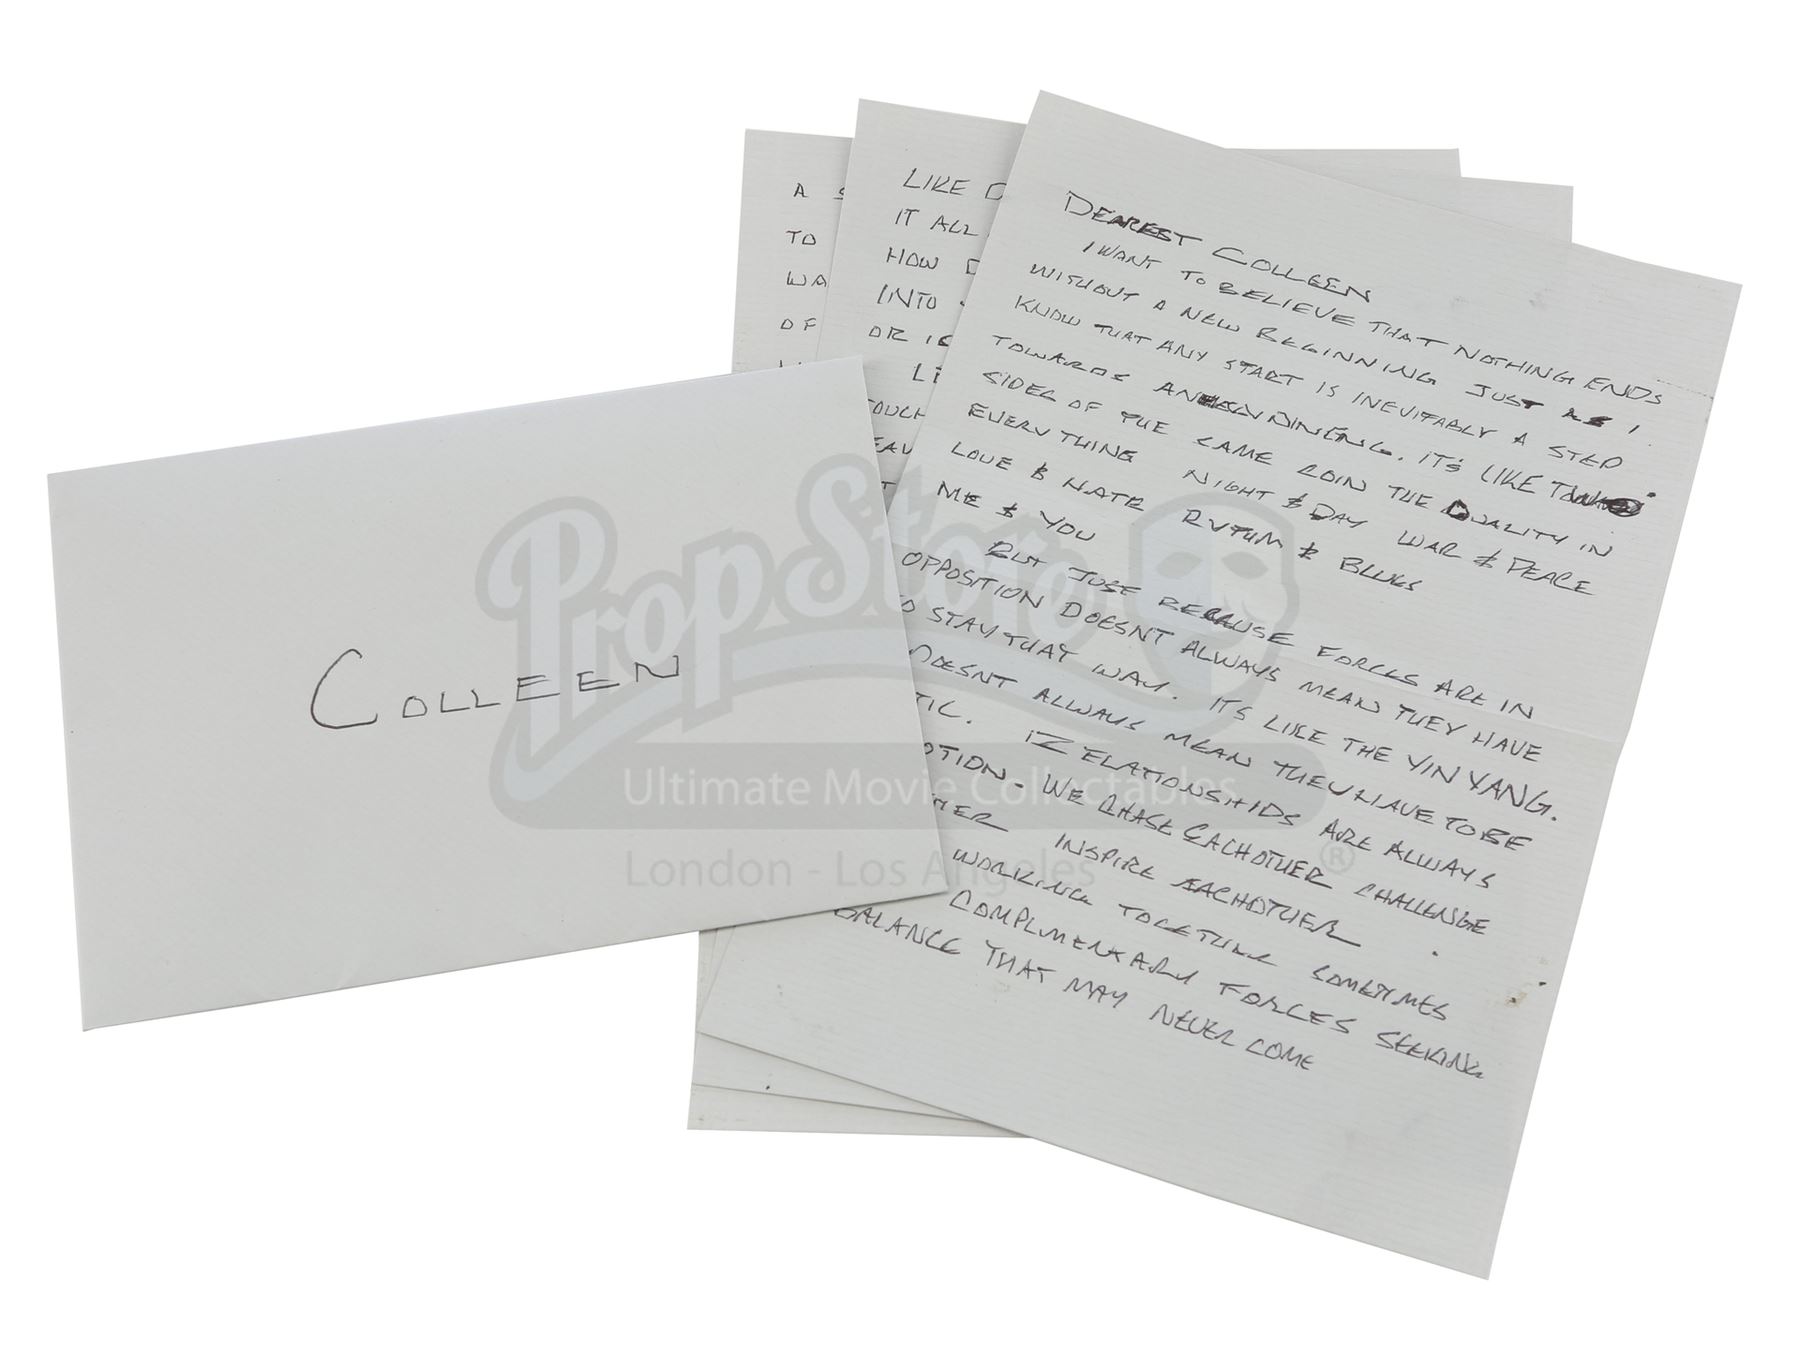 COLLEEN
A
TO
WA
OF
LIKE D
IT ALL
HOW D
INTO
OR IS
LI
TOUCH
EAV
DEAREST COLLEEN
I WANT TO BELIEVE THAT NOTHING ENDS
WITHOUT A NEW BEGINNING JUST AS I
KNOW THAT ANY START IS INEVITABLY A STEP
TOWARDS AN ENDING. IT'S LIKE TWO
SIDES OF THE SAME COIN THE DUALITY IN
EVERYTHING NIGHT & DAY WAR & PEACE
LOVE & HATE RYTHM & BLUES
ME & YOU
BUT JUST BECAUSE FORCES ARE IN
OPPOSITION DOESNT ALWAYS MEAN THEY HAVE
TO STAY THAT WAY. IT'S LIKE THE YIN YANG.
DOESNT ALWAYS MEAN THEY HAVE TO BE
TIC. RELATIONSHIPS ARE ALWAYS
OTION. WE CHASE EACHOTHER CHALLENGE
HER INSPIRE EACHOTHER.
WORKING TOGETHER SOMETIMES
COMPLIMENTARY FORCES SEEKING
BALANCE THAT MAY NEVER COME
PropStore
Ultimate Movie Collectables
London - Los Angeles
®